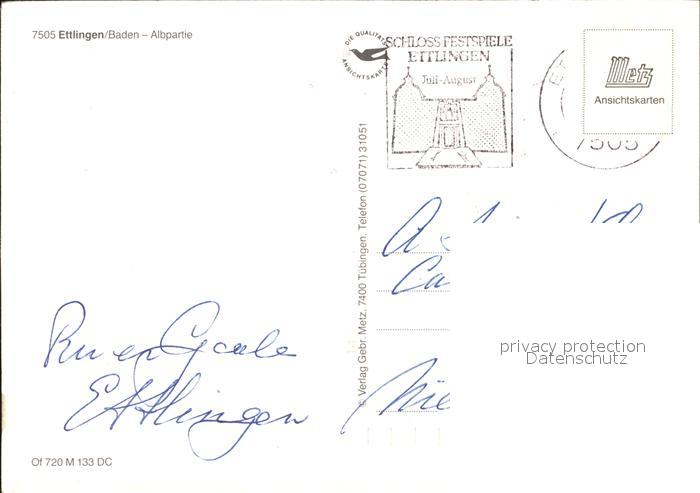 7505 Ettlingen/Baden – Albpartie
DIE QUALITÄTS
ANSICHTSKARTE
SCHLOSS FESTSPIELE
ETTLINGEN
Juli-August
Metz
Ansichtskarten
7505
© Verlag Gebr. Metz, 7400 Tübingen, Telefon (07071) 31051
Ca
privacy protection
Datenschutz
Ettlingen
Nie
Of 720 M 133 DC